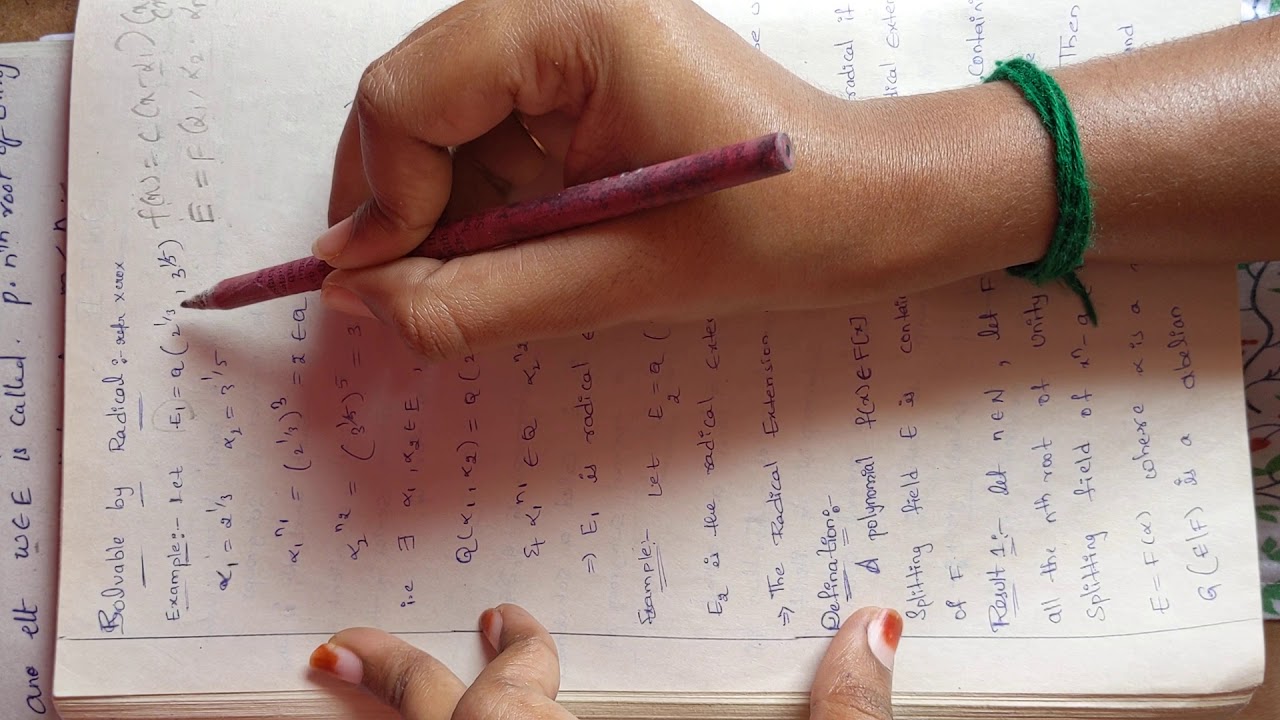 Solvable by Radical :-
Example:- Let E1 = Q(2^1/3, 3^1/5)
f(x) = c(x-α1)
E = F(α1, α2
α1 = 2^1/3 α2 = 3^1/5
α1^n1 = (2^1/3)^3 = 2 ∈ Q
α2^n2 = (3^1/5)^5 = 3
i.e ∃ α1, α2 ∈ E,
Q(α1, α2) = Q(2
& α1^n1 ∈ Q α2^n2
⇒ E1 is radical
Example:- Let E2 = Q(
E2 is the radical Exten
⇒ The Radical Extension.
Defination:-
A polynomial f(x) ∈ F[x] radical if
Splitting field E is contain dical Exten
of F.
Result 1:- let n ∈ N, let F Contain
all the nth root of unity
Splitting field of x^n - a Then
E = F(α) where α is a and
G(E|F) is a abelian
ano elt w∈E is called. p. nth root of